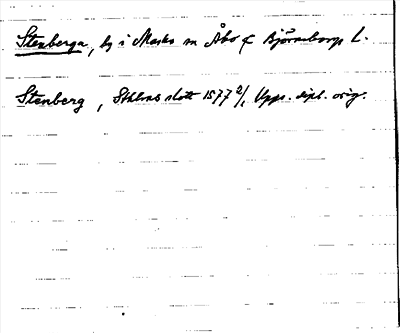 Stenberga, by i Masku sn Åbo & Björneborgs l.
Stenberg, Sthlms slott 1577 2/1 Upps. dipl. orig.